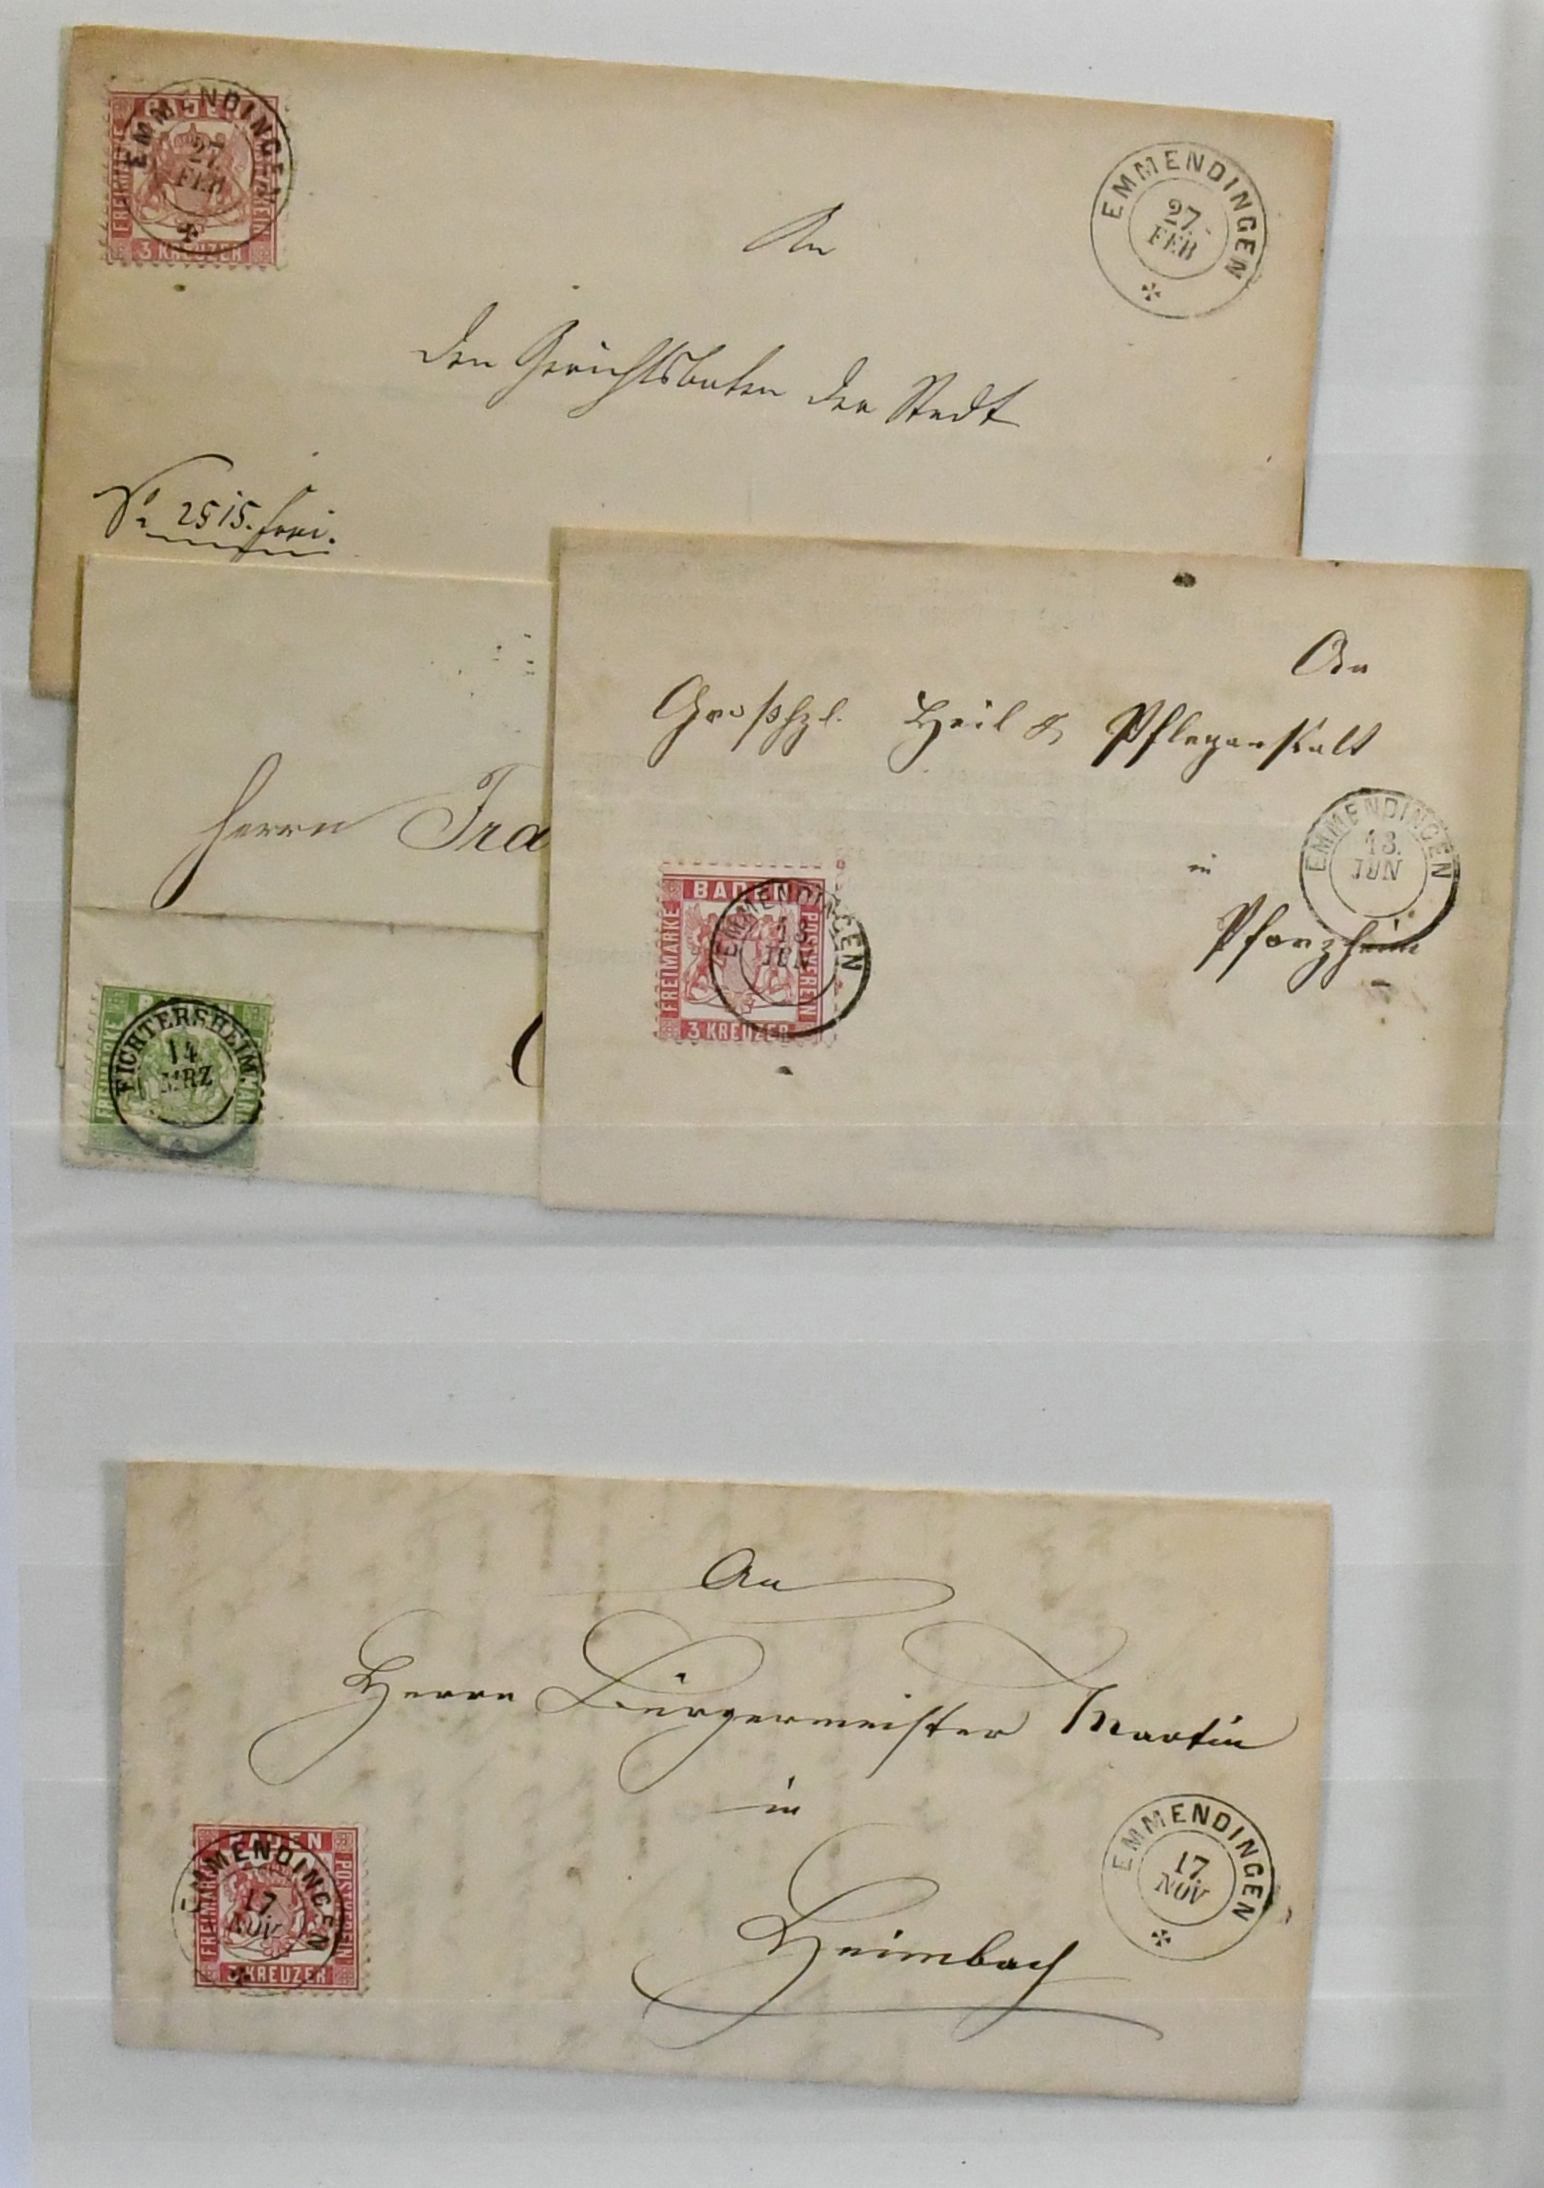 BADEN
FREIMARKE
POSTVEREIN
3 KREUZER
EMMENDINGEN
27.
FEB
EMMENDINGEN
27.
FEB
An
den Gerichtsboten der Stadt
2515. frei.
Herrn Fra
EICHTERSHEIM
14
MRZ
An
Großhzl. Heil & Pflegeanstalt
in
Pforzheim
EMMENDINGEN
13.
JUN
BADEN
FREIMARKE
POSTVEREIN
3 KREUZER
EMMENDINGEN
13.
JUN
An
Herrn Bürgermeister Martin
in
Heimbach
BADEN
FREIMARKE
POSTVEREIN
3 KREUZER
EMMENDINGEN
17.
NOV
EMMENDINGEN
17.
NOV